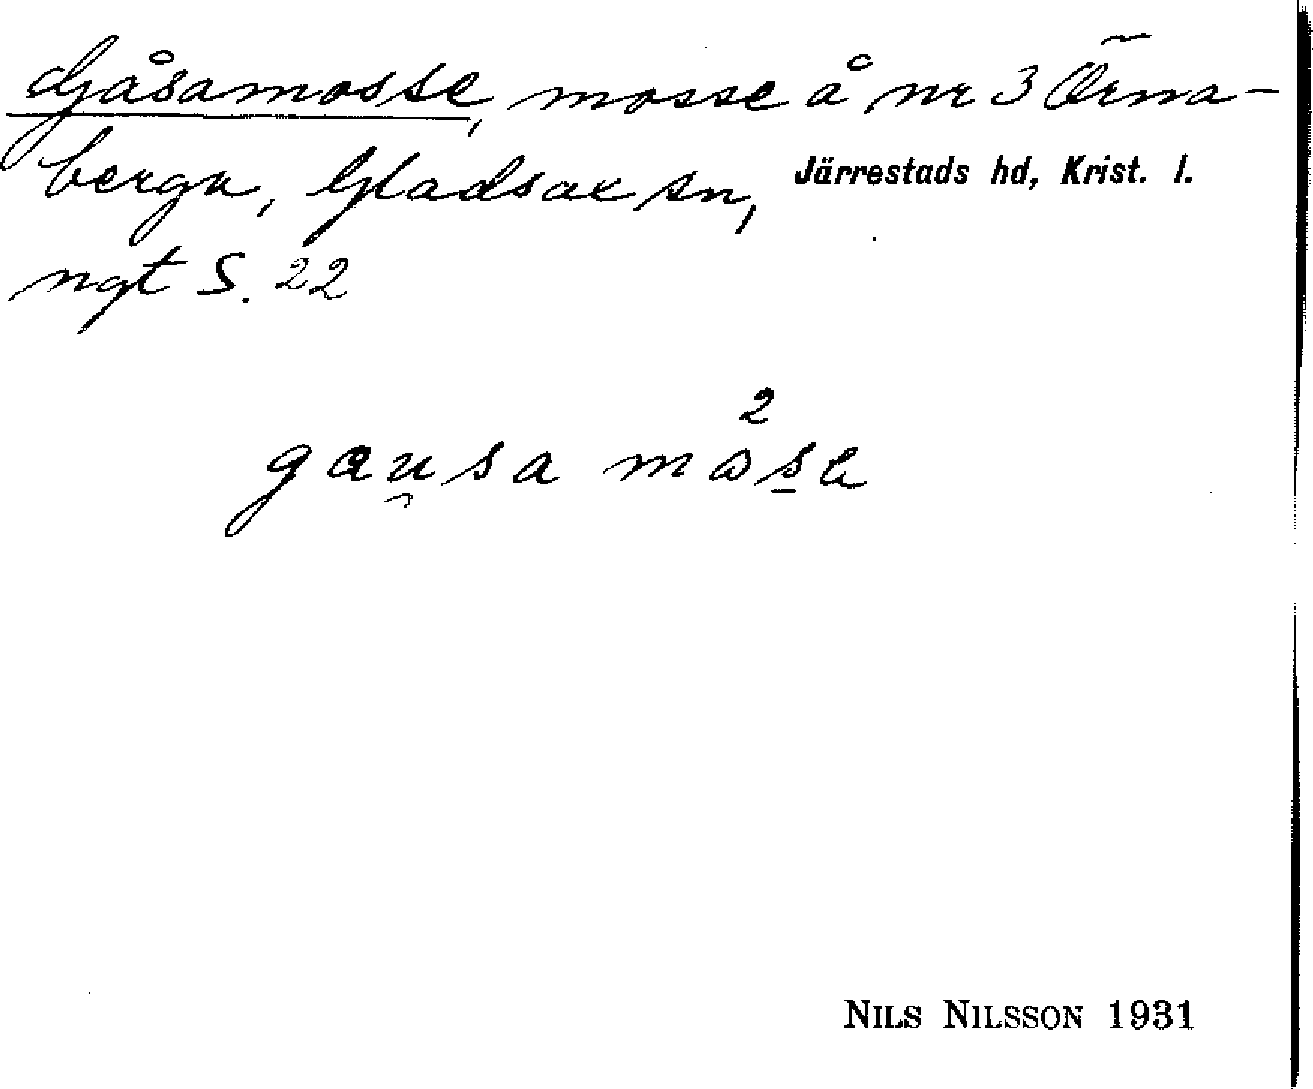 Gåsamosse, mosse å nr 3 Örna-
berga, Gladsax sn, Järrestads hd, Krist. l.
ngt S. 22
2
gau̯sa mɷs̲e
NILS NILSSON 1931